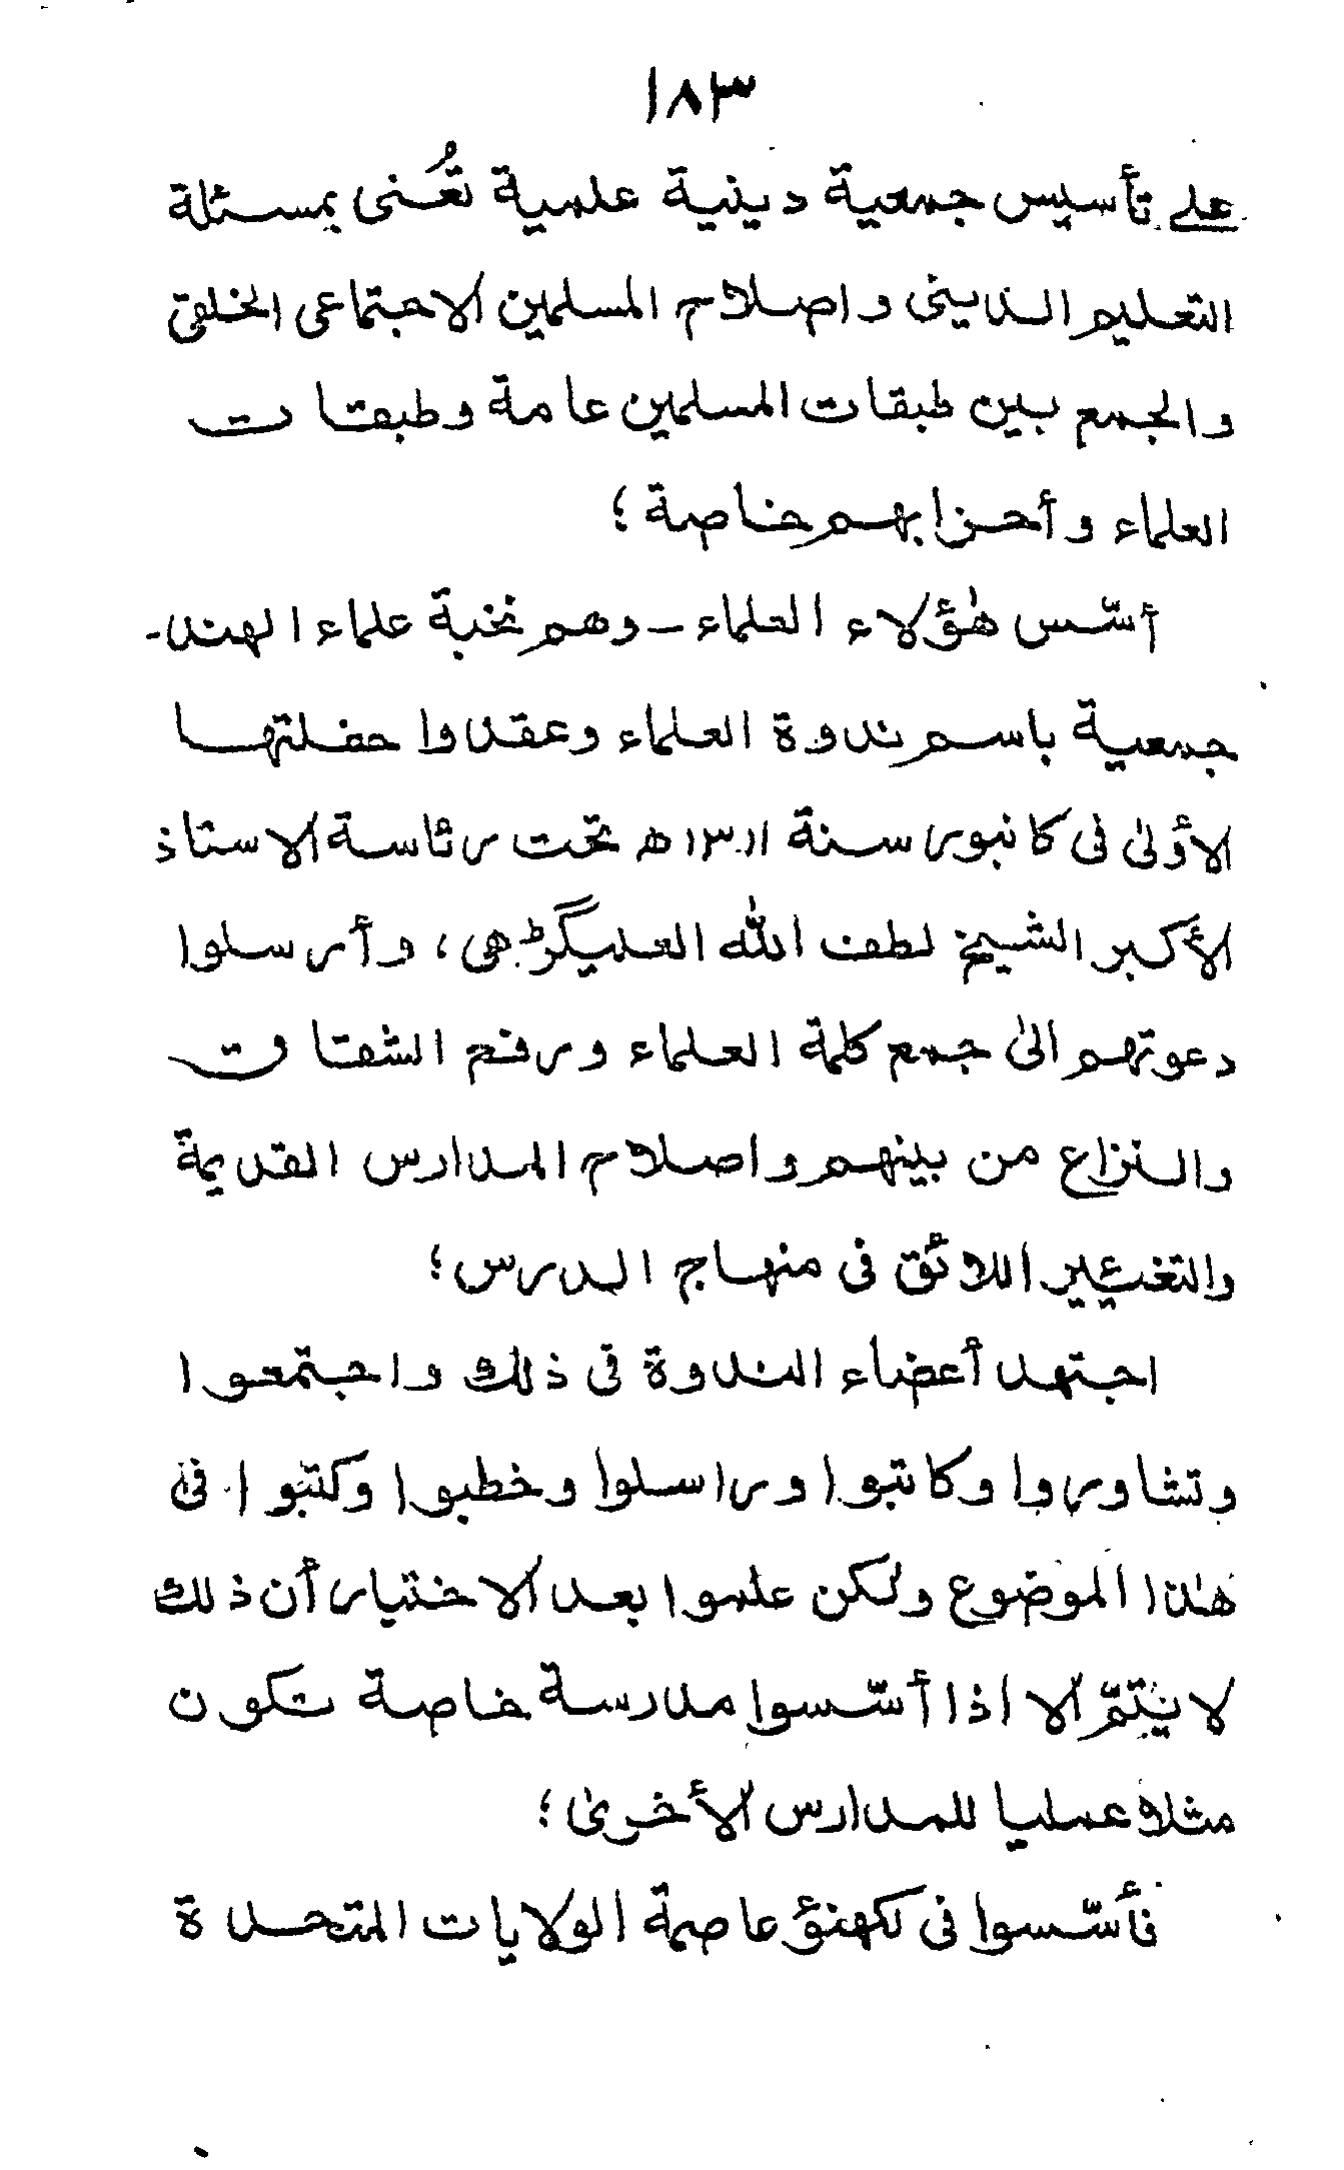 ١٨٣
على تأسيس جمعية دينية علمية تُعنى بمسئلة
التعليم الدينى واصلاح المسلمين الاجتماعى الخلقى
والجمع بين طبقات المسلمين عامة وطبقات
العلماء وأحزابهم خاصة ؛
أسّس هٰؤلاء العلماء ـ وهم نخبة علماء الهند ـ
جمعية باسم ندوة العلماء وعقدوا حفلتها
الأولىٰ فى كانبور سنة ١٣٠١١ ھ تحت رئاسة الاستاذ
الأكبر الشيخ لطف الله العليگڑھى ، وأرسلوا
دعوتهم الىٰ جمع كلمة العلماء ورفع الشقاق
والنزاع من بينهم واصلاح المدارس القديمة
والتغيير اللائق فى منهاج الدرس ؛
اجتهد أعضاء الندوة فى ذلك واجتمعوا
وتشاوروا وكاتبوا وراسلوا وخطبوا وكتبوا فى
هٰذا الموضوع ولكن علموا بعد الاختيار أن ذلك
لا يتمّ الا اذا أسّسوا مدرسة خاصة تكون
مثلا عمليا للمدارس الأخرىٰ ؛
فأسّسوا فى لكهنؤ عاصمة الولايات المتحدة